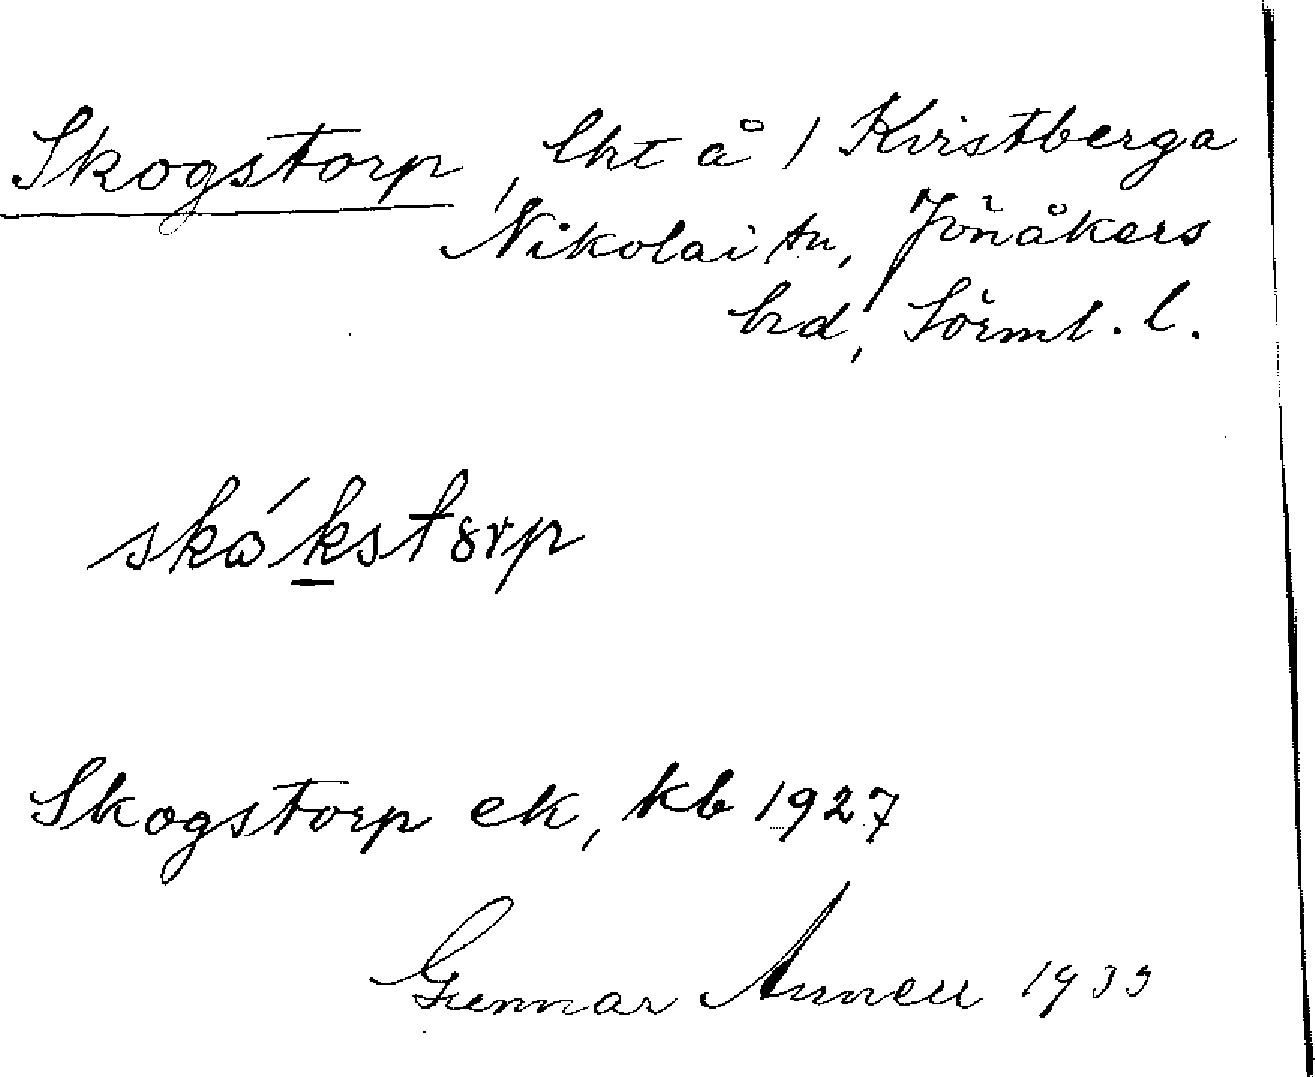 Skogstorp, lht å 1 Kvistberga
Nikolai sn, Jönåkers
hd, Sörml. l.
skó̀kstorp
Skogstorp ek, kb 1927
Gunnar Annell 1933